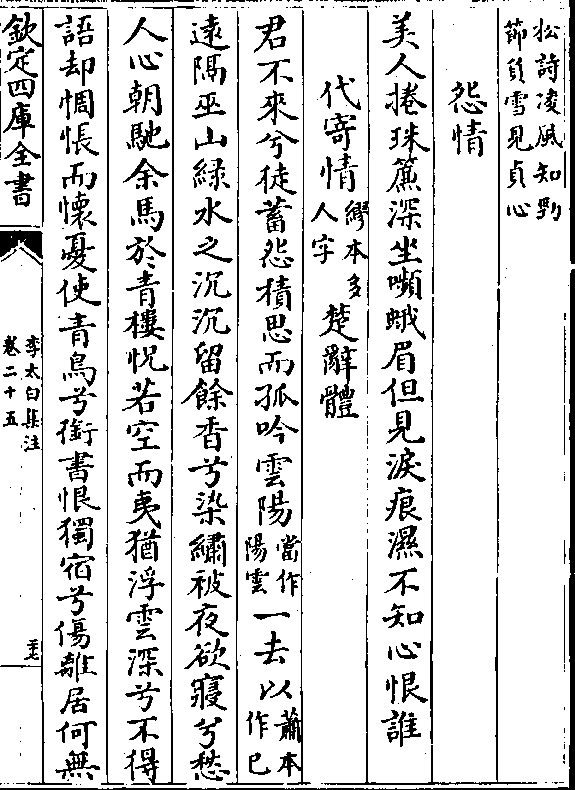 松詩凌風知勁
節負雪見貞心
怨情
美人捲珠簾深坐嚬蛾眉但見淚痕濕不知心恨誰
代寄情繆本多人字楚辭體
君不來兮徒蓄怨積思而孤吟雲陽當作陽雲一去以蕭本作已
遠隔巫山緑水之沉沉留餘香兮染繡被夜欲寢兮愁
人心朝馳余馬於青樓怳若空而夷猶浮雲深兮不得
語却惆悵而懷憂使青鳥兮銜書恨獨宿兮傷離居何無
欽定四庫全書
李太白集注
卷二十五
三七